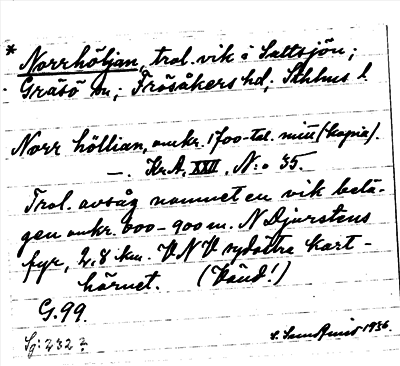 * Norrhöljan, trol. vik i Saltsjön;
Gräsö sn; Frösåkers hd; Sthlms l.
Norr höllian, omkr. 1700-tal. mitt (kopia).
—. Kr.A. XXII, N:o 35.
Trol. avsåg namnet en vik belä-
gen omkr. 800-900 m. N Djurstens
fyr, 2,8 km. VNV sydöstra kart-
hörnet. (Vänd!)
G.99.
Sg: 2322
1936